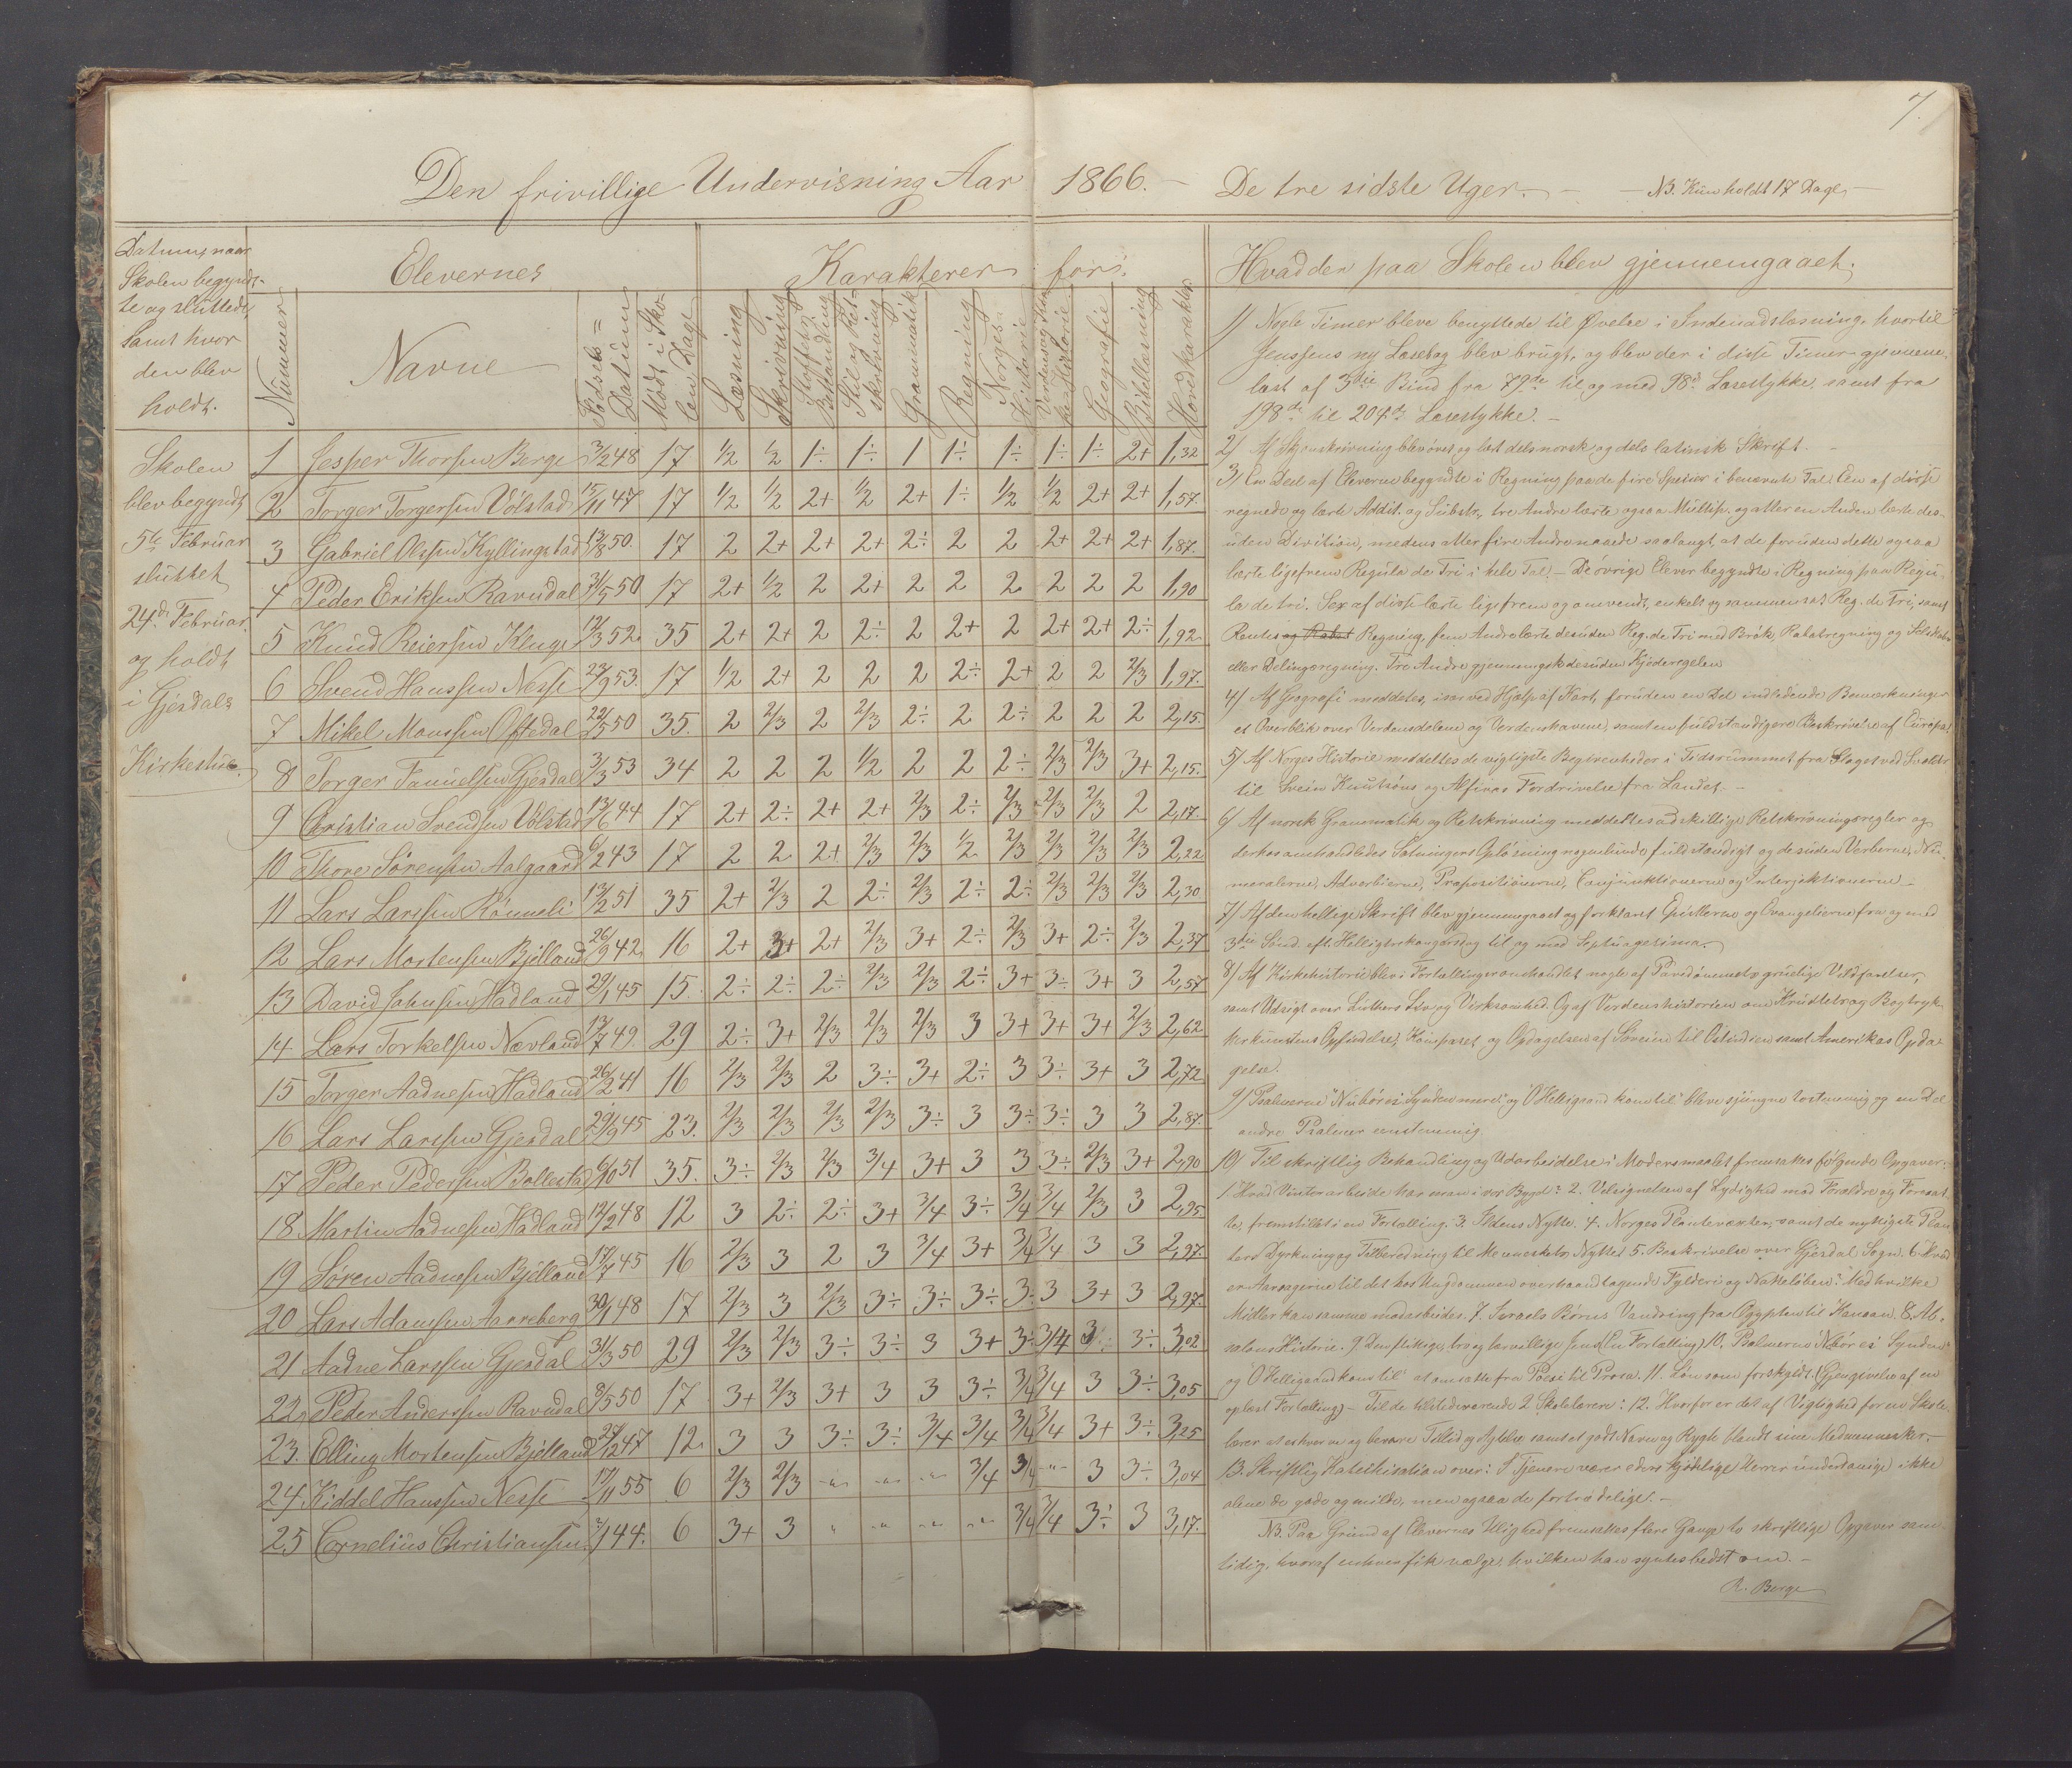 7.
Den frivillige Undervisning Aar 1866. — De tre sidste Uger. — — NB. Kun holdt 17 Dage —
Datum, naar
Skolen begynd-
te og sluttede,
samt hvor
den blev
holdt.
Elevernes
Karakterer for:
Hvad der paa Skolen blev gjennemgaaet.
Nummer
Navne
Fødsels= Datum
Mødt i Sko-
len Dage
Læsning
Skrivning
Stoffets Behandling
Stil og Ret-
skrivning
Grammatik
Regning
Norges Historie
Verdens og Kir-
ke Historie
Geografie
Bibellæsning
Hovedkarakter
Skolen
blev begyndt
5te Februar
sluttet
24de Februar
og holdt
i Gjesdals
Kirkestue.
1 Jesper Thorsen Berge 3/2 48 17 1/2 1/2 1÷ 1÷ 1 1÷ 1÷ 1÷ 1÷ 2+ 1,32
2 Torger Torgersen Vølstad 15/11 47 17 1/2 1/2 2+ 1/2 2+ 1÷ 1/2 1/2 2+ 2+ 1,57
3 Gabriel Olsen Kyllingstad 13/8 50. 17 2 2+ 2+ 2+ 2÷ 2 2 2+ 2+ 2+ 1,87.
4 Peder Eriksen Ravndal 31/5 50 17 2+ 1/2 2 2+ 2 2 2 2 2 2 1,90
5 Knud Reiersen Kluge 12/3 52. 35 2+ 2+ 2 2÷ 2 2+ 2 2+ 2+ 2÷ 1,92.
6 Svend Hanssen Nesse 22/9 53. 17 1/2 2+ 2 2 2 2÷ 2+ 2 2 2/3 1,97.
7 Mikel Monssen Oftedal 22/5 50 35. 2 2/3 2 2/3 2÷ 2 2÷ 2 2 2 2,15.
8 Torger Tønnelsen Gjesdal 3/3 53 34 2 2 2 1/2 2 2 2÷ 2/3 2/3 3+ 2,15.
9 Christian Svendsen Vølstad 13/6 44 17 2+ 2÷ 2+ 2+ 2/3 2÷ 2/3 2/3 2/3 2 2,17.
10 Thore Sørensen Aalgaard 6/2 43 17 2 2 2+ 2/3 2/3 1/2 2/3 2/3 2/3 2/3 2,22
11 Lars Larssen Rønneli 13/2 51 35 2+ 2/3 2 2÷ 2/3 2÷ 2÷ 2/3 2/3 2/3 2,30
12 Lars Mortensen Bjelland 26/9 42. 16 2+ 3+ 2+ 2/3 3+ 2÷ 2/3 3+ 2÷ 2/3 2,37
13 David Johnsen Hadland 29/1 45 15. 2÷ 2÷ 2÷ 2/3 2/3 2÷ 3+ 3÷ 3+ 3 2,57
14 Lars Torkelsen Nævland 13/7 49. 29 2÷ 3+ 2/3 2/3 2/3 3 3+ 3+ 3+ 2/3 2,62
15 Torger Aadnesen Hadland 26/2 41 16 2/3 2/3 2 3÷ 3+ 2÷ 3 3÷ 3+ 3 2,72
16 Lars Larssen Gjesdal 29/9 45 23. 2/3 2/3 2/3 2/3 3÷ 3 3÷ 3÷ 3 3 2,87.
17 Peder Pedersen Bollestad 6/10 51 35. 3÷ 2/3 2/3 3/4 3+ 3 3 3÷ 2/3 3+ 2,90
18 Martin Aadnesen Hadland 12/2 48 12 3 2÷ 2÷ 3+ 3/4 3÷ 3/4 3/4 2/3 3 2,95
19 Søren Aadnesen Bjelland 17/7 45 16 2/3 3 2 3 3/4 3+ 3/4 3/4 3 3 2,97.
20 Lars Adamsen Aareberg 30/1 48 17 2/3 3 2/3 3÷ 3÷ 3÷ 3÷ 3 3+ 3 2,97.
21 Aadne Larssen Gjesdal 31/3 50 29 2/3 2/3 3÷ 3÷ 3 3+ 3÷ 3/4 3 3÷ 3,02
22. Peder Anderssen Ravndal 8/5 50 17 3+ 2/3 3+ 3 3 3÷ 3/4 3/4 3 3÷ 3,05
23. Elling Mortensen Bjelland 27/12 47 12. 3 3 3÷ 3÷ 3/4 3/4 3/4 3/4 3+ 3÷ 3,25
24. Kiddel Hanssen Nesse 17/11 55 6 2/3 2/3 -"- -"- -"- 3/4 3/4 -"- 3 3÷ 3,04
25 Cornelius Christiansen 2/1 44. 6 3+ 3 " -"- -"- -"- 3/4 3/4 3÷ 3 3,17.
1) Nogle Timer bleve benyttede til Øvelse i Indenadslæsning, hvortil
Jenssens ny Læsebog blev brugt, og blev der i disse Timer gjennem-
læst af 3die Bind fra 79de til og med 98de Læsestykke, samt fra
198de til 204de Læsestykke. —
2) Af Skjønskrivning blev øvet og læst dels norsk og dels latinsk Skrift. —
3) En Deel af Eleverne begyndte i Regning paa de fire Species i benævnte Tal. Een af disse
regnede og lærte Addit. og Subtr., tre Andre lærte ogsaa Multip. og atter en Anden lærte des-
uden Division, medens atter fire Andre naaede saa langt, at de foruden dette ogsaa
lærte ligefrem Regula de Tri i hele Tal. — De øvrige Elever begyndte i Regning paa Regu-
la de tri. Sex af disse lærte ligefrem og omvendt, enkelt og sammensat Reg. de Tri, samt
Rentes og Rabat Regning, fem Andre lærte desuden Reg. de Tri med Brøk, Rabatregning og Selskabs
eller Delingsregning. Tre Andre gjennemgik desuden Kjæderegelen
4) Af Geografi meddeltes, især ved Hjælp af Kart, foruden en Del indledende Bemærkninger
et Overblik over Verdensdelene og Verdenshavene, samt en fuldstændigere Beskrivelse af Europa.
5) Af Norges Historie meddeltes de vigtigste Begivenheder i Tidsrummet fra Slaget ved Svolder
til Svein Knutsøns og Alfivas Fordrivelse fra Landet. —
6) Af norsk Grammatik og Retskrivning meddeltes adskillige Retskrivningsregler og
derhos omhandledes Sætningers Opløsning nogenlunde fuldstændigt og desuden Verberne, Nu-
meralerne, Adverbierne, Præpositionerne, Conjunktionerne og Interjektionerne —
7) Af den hellige Skrift blev gjennemgaaet og forklaret Epistlerne og Evangelierne fra og med
3die Sønd. eft. Helligtrekongersdag til og med Septuagesima. —
8) Af Kirkehistorie blev i Fortællinger omhandlet nogle af Pavedømmets gruelige Vildfarelser,
samt Udsigt over Luthers Liv og Virksomhed. Og af Verdenshistorien om Krudtets og Bogtryk-
kerkunstens Opfindelse, Kompasset og Opdagelsen af Søveien til Ostindien samt Amerikas Opda-
gelse.
9) Psalmerne "Nu bør ei Synden mere" og "O Helligaand kom til" bleve sjungne tostemmig og en Del
andre Psalmer eenstemmig.
10) Til skriftlig Behandling og Udarbeidelse i Modersmaalet fremsattes følgende Opgaver:
1. Hvad Vinterarbeide har man i vor Bygd? 2. Velsignelsen af Lydighed mod Forældre og Foresat-
te, fremstillet i en Fortælling. 3. Ildens Nytte. 4. Norges Plantevæxter, samt de nyttigste Plan-
ters Dyrkning og Tilberedning til Menneskets Nytte. 5. Beskrivelse over Gjesdal Sogn. 6. Hvad
er Aarsagerne til det hos Ungdommen overhaandtagende Fylderi og Natteløben? Med hvilke
Midler kan samme modarbeides. 7. Israels Børns Vandring fra Ægypten til Kanaan. 8. Ab-
salons Historie. 9. Den flittige, tro og tarvelige Jens (En Fortælling) 10. Psalmerne "Nu bør ei Synden"
og "O Helligaand kom til" at omsætte fra Poesi til Prosa. 11. Løn som forskyldt. (Gjengivelse af en
oplæst Fortælling) — Til de tilstedeværende 2 Skolelærere: 12. Hvorfor er det af Vigtighed for en Skole-
lærer at erhverve og bevare Tillid og Agtelse samt et godt Navn og Rygte blandt sine Medmennesker. —
13. Skriftlig Katekisation over: I Tjenere værer eders kjødelige Herrer underdanige, ikke
alene de gode og milde, men ogsaa de fortrædelige. —
NB. Paa Grund af Elevernes Ulighed fremsattes flere Gange to skriftlige Opgaver sam-
tidig, hvoraf enhver fik vælge, hvilken han syntes bedst om. —
R. Berge